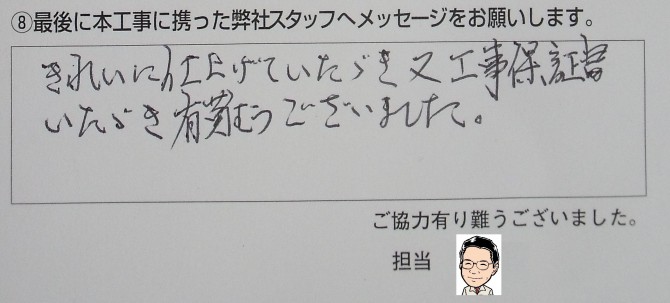 ⑧最後に本工事に携った弊社スタッフへメッセージをお願いします。
きれいに仕上げていただき又工事保証書
いただき有難うございました。
ご協力有り難うございました。
担当